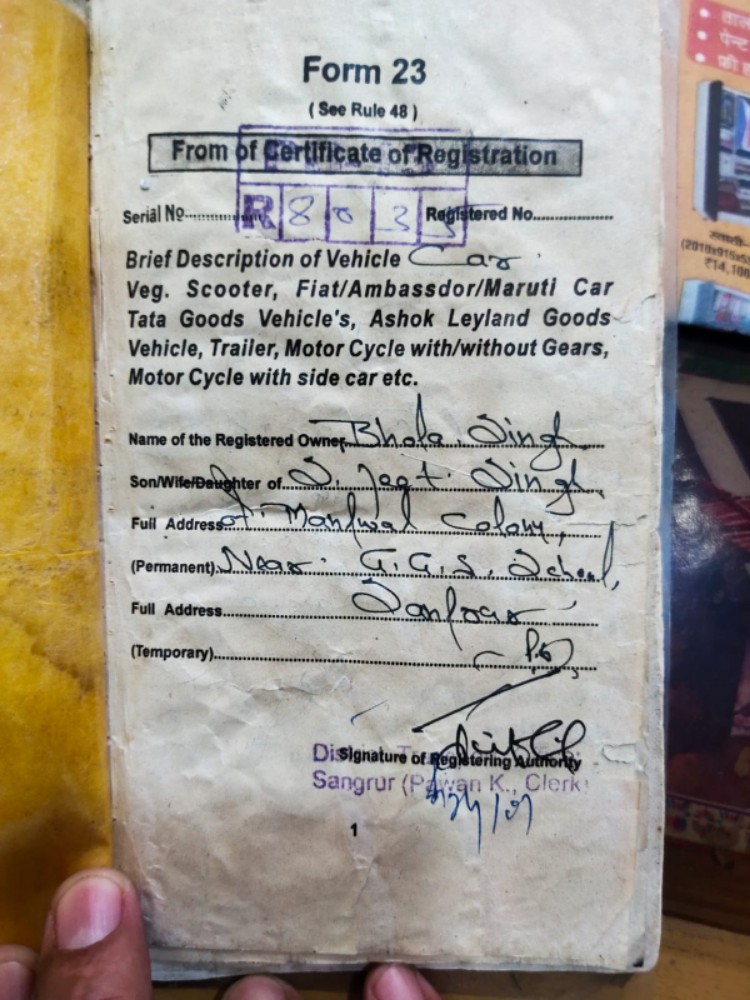 Form 23
( See Rule 48 )
From of Certificate of Registration
Serial No. R 8 0 3 5 Registered No.
Brief Description of Vehicle Car.
Veg. Scooter, Fiat/Ambassdor/Maruti Car
Tata Goods Vehicle's, Ashok Leyland Goods
Vehicle, Trailer, Motor Cycle with/without Gears,
Motor Cycle with side car etc.
Name of the Registered Owner Bhola Singh
Son/Wife/Daughter of S. Jagt. Singh
Full Address Colony,
(Permanent). Near. G.G.S. School,
Full Address Sangrur
(Temporary) (Pb)
Signature of Registering Authority
Sangrur (Pawan K., Clerk)
1